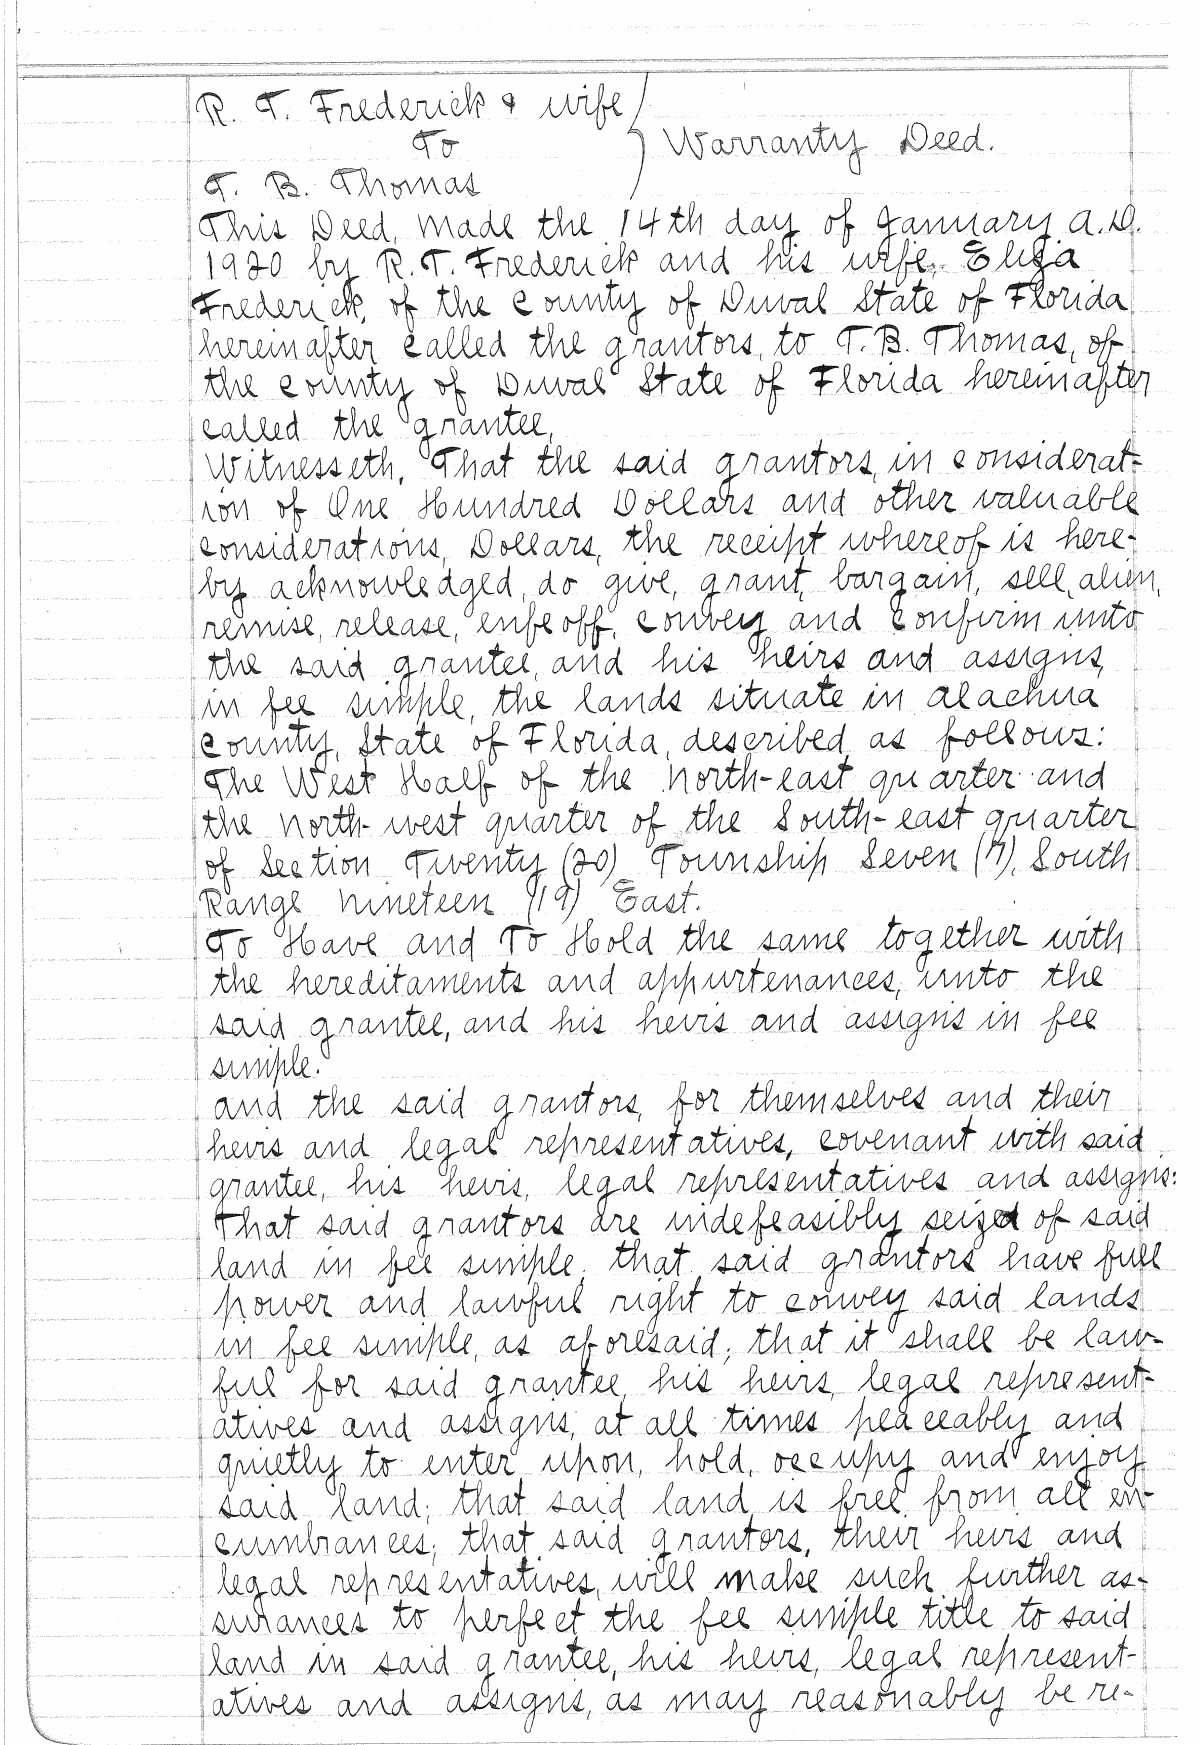 R. T. Frederick & wife
To
Warranty Deed.
T. B. Thomas
This Deed, Made the 14th day of January A.D.
1920 by R.T. Frederick and his wife, Eliza
Frederick, of the County of Duval State of Florida
hereinafter called the grantors, to T.B. Thomas, of
the County of Duval State of Florida hereinafter
called the grantee,
Witnesseth, That the said grantors, in considerat-
ion of One Hundred Dollars and other valuable
considerations, Dollars, the receipt whereof is here-
by acknowledged, do give, grant, bargain, sell, alien,
remise, release, enfeoff, convey and confirm unto
the said grantee, and his heirs and assigns,
in fee simple, the lands situate in Alachua
County, State of Florida, described as follows:
The West Half of the North-east quarter and
the North-west quarter of the South-east quarter
of Section Twenty (20) Township Seven (7), South
Range Nineteen (19) East.
To Have and To Hold the same together with
the hereditaments and appurtenances, unto the
said grantee, and his heirs and assigns in fee
simple.
And the said grantors, for themselves and their
heirs and legal representatives, covenant with said
grantee, his heirs, legal representatives and assigns:
That said grantors are indefeasibly seized of said
land in fee simple; that said grantors have full
power and lawful right to convey said lands
in fee simple, as aforesaid; that it shall be law-
ful for said grantee, his heirs, legal represent-
atives and assigns, at all times peaceably and
quietly to enter upon, hold, occupy and enjoy
said land; that said land is free from all en-
cumbrances; that said grantors, their heirs and
legal representatives, will make such further as-
surances to perfect the fee simple title to said
land in said grantee, his heirs, legal represent-
atives and assigns, as may reasonably be re-